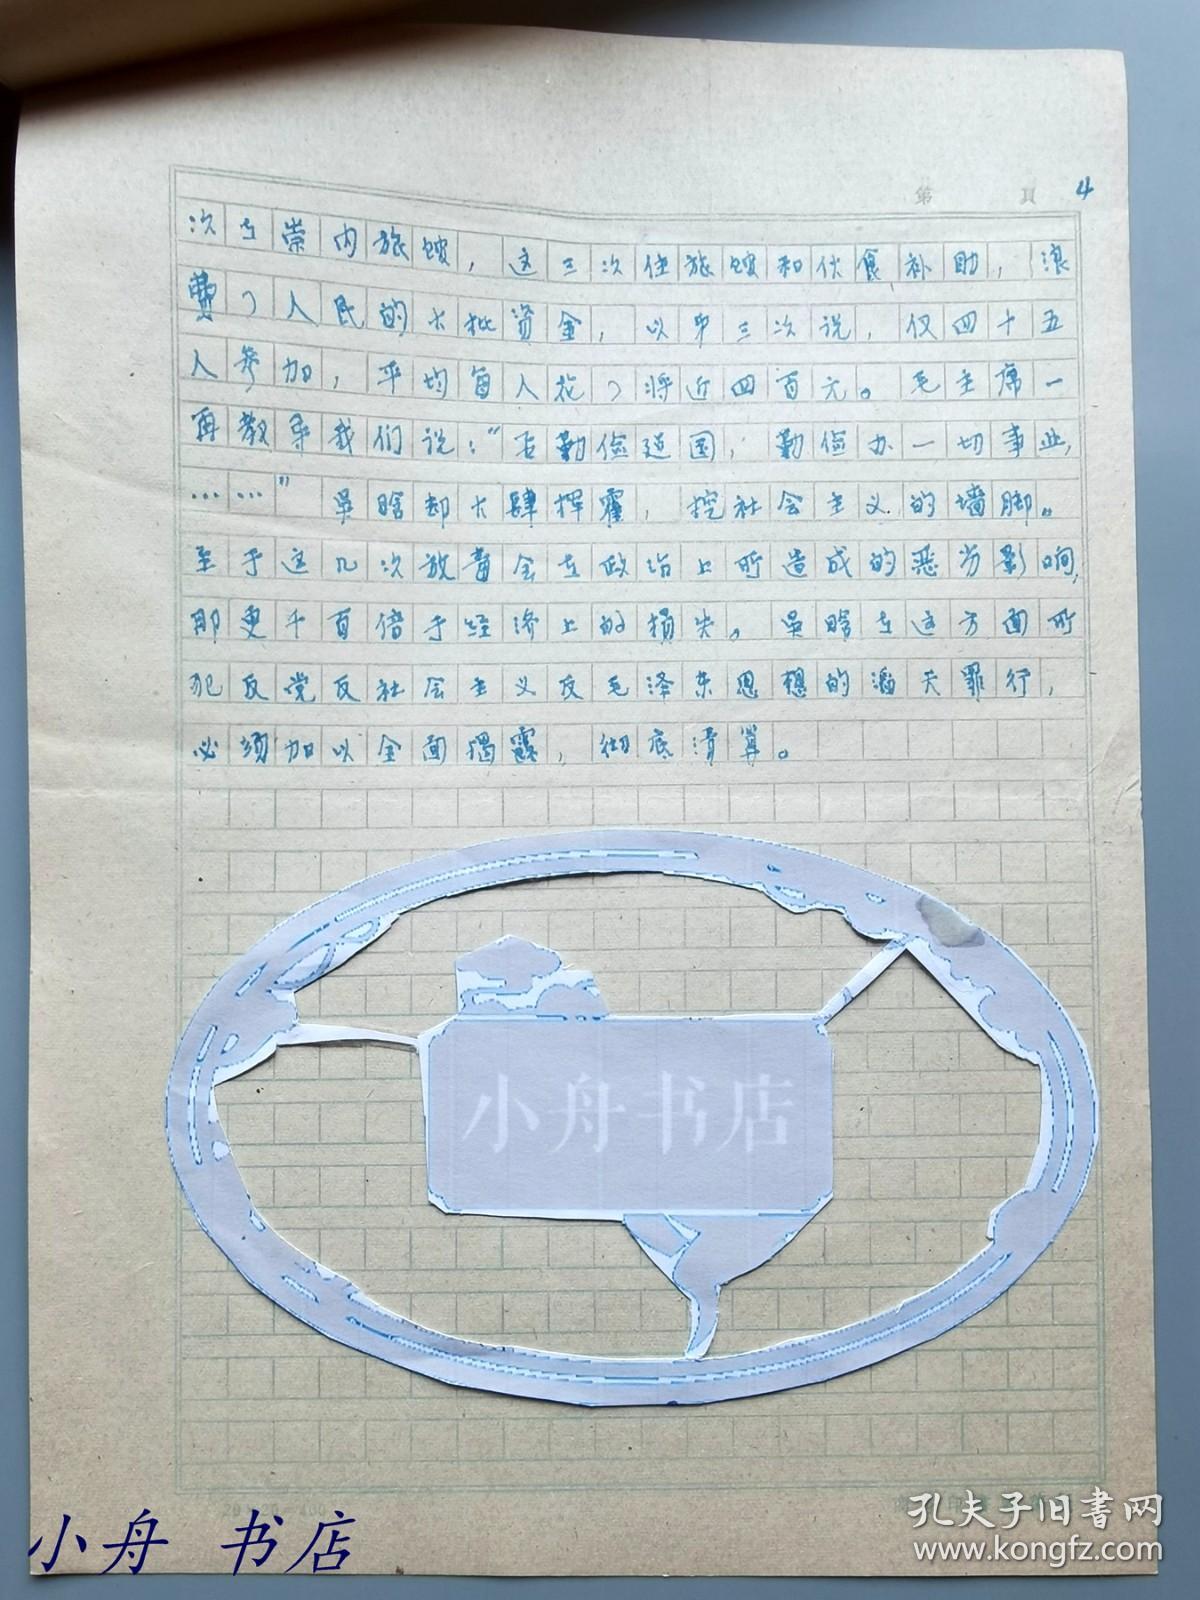 第 頁 4
次在崇内旅馆，这三次住旅馆和伙食补助，浪
费了人民的大批资金，以第三次说，仅四十五
人参加，平均每人花了将近四百元。毛主席一
再教导我们说：“要勤俭建国，勤俭办一切事业，
……”吴晗却大肆挥霍，挖社会主义的墙脚。
至于这几次放毒会在政治上所造成的恶劣影响，
即更千百倍于经济上的损失。吴晗在这方面所
犯反党反社会主义反毛泽东思想的滔天罪行，
必须加以全面揭露，彻底清算。
小舟书店
20×20=400
小舟 书店
孔夫子旧书网
www.kongfz.com